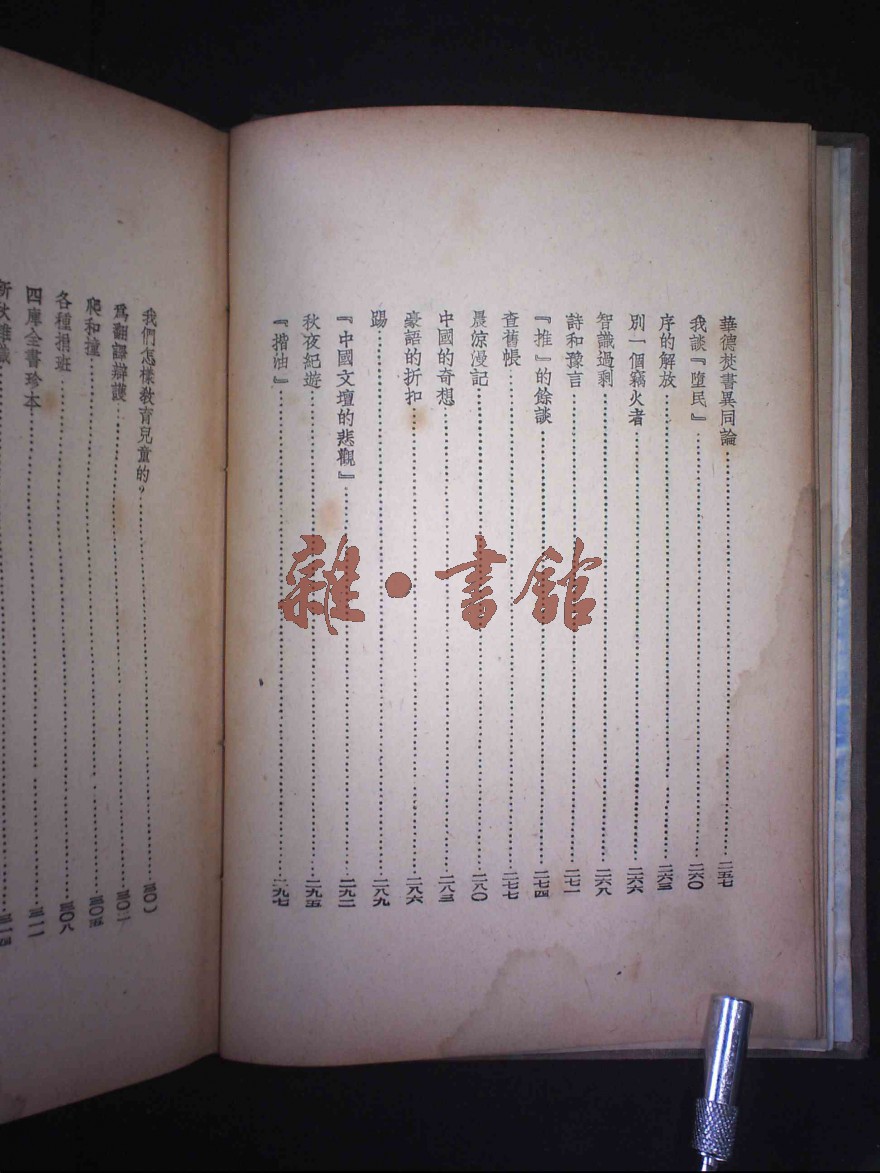 華德焚書異同論……二五七
我談『墮民』……二六〇
序的解放……二六三
別一個竊火者……二六六
智識過剩……二六八
詩和豫言……二七一
『推』的餘談……二七四
查舊帳……二七七
晨涼漫記……二八〇
中國的奇想……二八三
豪語的折扣……二八六
踢……二八九
『中國文壇的悲觀』……二九二
秋夜紀遊……二九五
『揩油』……二九七
我們怎樣教育兒童的？……三〇一
為翻譯辯護……三〇二
爬和撞……三〇五
各種捐班……三〇八
四庫全書珍本……三一一
新秋雜識……三一四
雜·書館